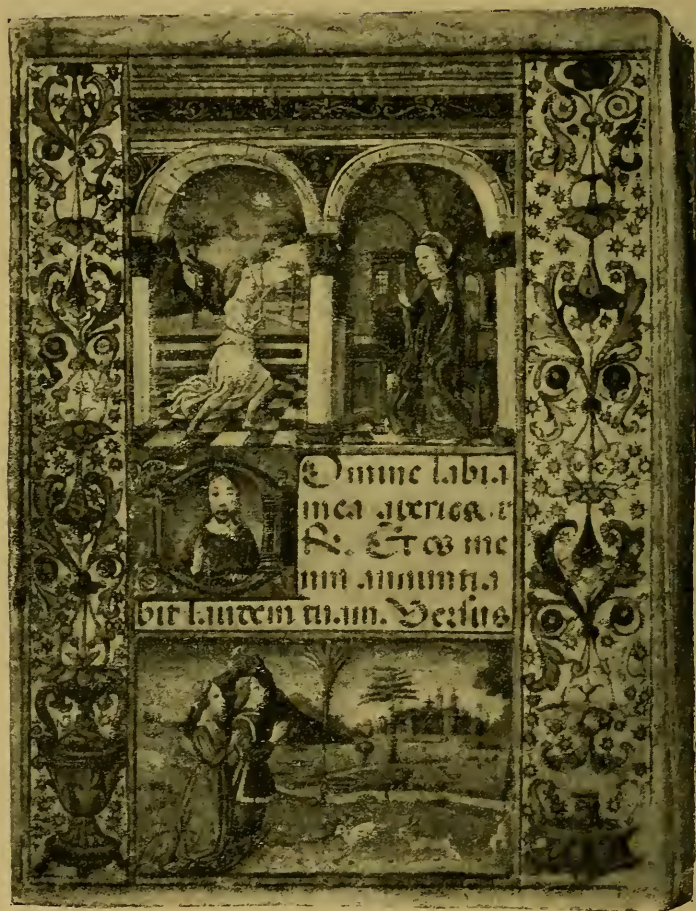 Domine labia
mea aperies.
R. Et os me
um annuntia
bit laudem tuam. Versus